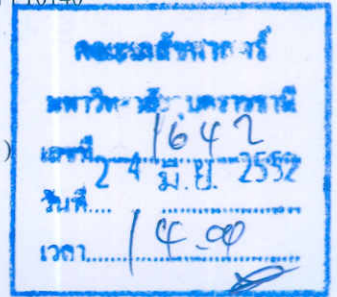 คณะเภสัชศาสตร์
มหาวิทยาลัยอุบลราชธานี
เลขที่ 1642
วันที่.... 2 4 มิ.ย. 2552
เวลา...... 14.00